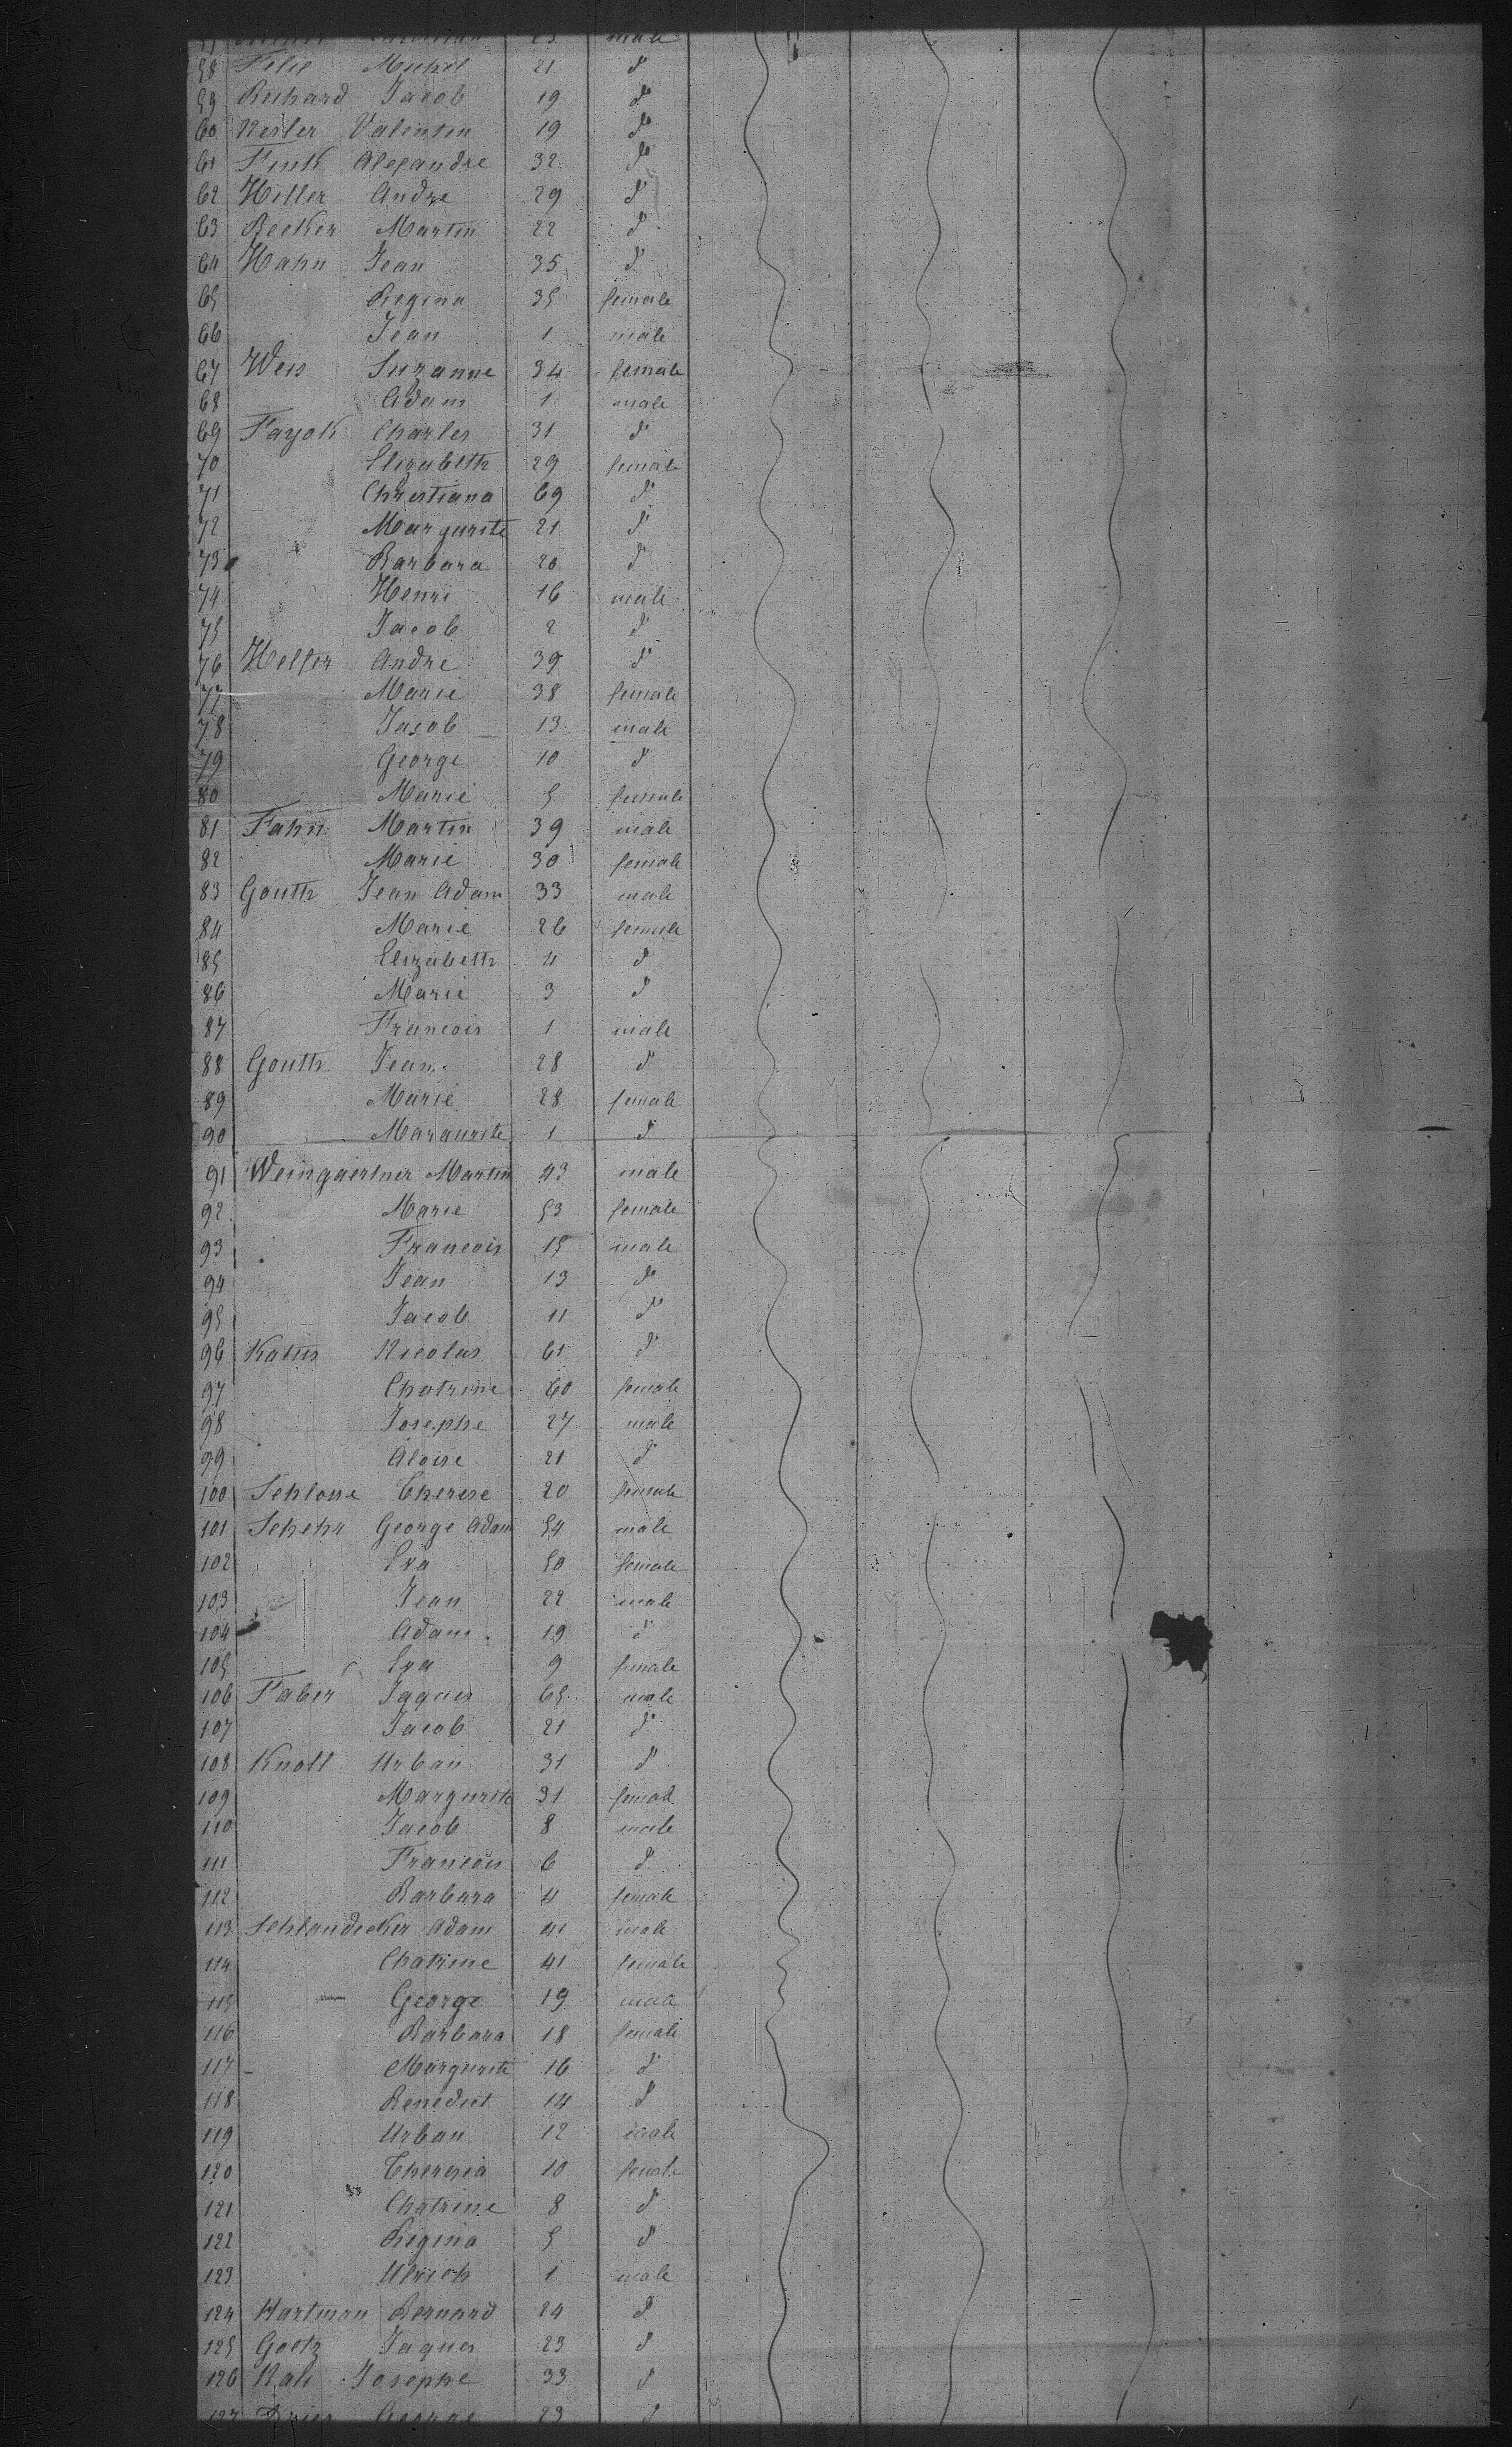 male
58 Felie Michel 21 do
59 Richard Jacob 19 do
60 Nesler Valentin 19 do
61 Funk Alexandre 32 do
62 Hiller Andre 29 do
63 Becker Martin 22 do
64 Hahn Jean 35 do
65 Regina 35 female
66 Jean 1 male
67 Weis Suzanne 34 female
68 Adam 1 male
69 Charles 31 do
70 Elizabeth 29 female
71 Christiana 69 do
72 Margurite 21 do
73 Barbara 20 do
74 Henri 16 male
75 Jacob 2 do
76 Heller Andre 39 do
77 Marie 38 female
78 Jacob 13 male
79 George 10 do
80 Marie 5 female
81 Fahn Martin 39 male
82 Marie 30 female
83 Gouth Jean Adam 33 male
84 Marie 26 female
85 Elizabeth 4 do
86 Marie 3 do
87 Francois 1 male
88 Gouth Jean 28 do
89 Marie 28 female
90 Margurite 1 do
91 Weingaertner Martin 43 male
92 Marie 53 female
93 Francois 15 male
94 Jean 13 do
95 Jacob 11 do
96 Nicolas 61 do
97 Chatrine 60 female
98 Josephe 27 male
99 Aloise 21 do
100 Schlosse Therese 20 female
101 Schehr George Adam 54 male
102 Eva 50 female
103 Jean 22 male
104 Adam 19 do
105 Eva 9 female
106 Faber Jaques 65 male
107 Jacob 21 do
108 Knoll Urban 31 do
109 Margurite 31 female
110 Jacob 8 male
111 Francois 6 do
112 Barbara 4 female
113 Schlaudecker Adam 41 male
114 Chatrine 41 female
115 George 19 male
116 Barbara 18 female
117 Margurite 16 do
118 Benedict 14 do
119 Urban 12 male
120 Theresia 10 female
121 Chatrine 8 do
122 Regina 5 do
123 Ulrich 1 male
124 Hartman Bernard 24 do
125 Goetz Jaques 23 do
126 Josephe 33 do
127 George 23 do